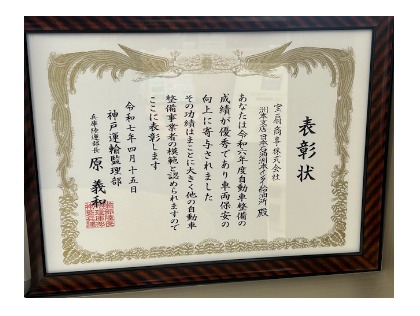 表彰状
宝扇商事株式会社
洲本支店
給油所 殿
あなたは令和六年度自動車整備の
成績が優秀であり車両保安の
向上に寄与されました
その功績はまことに大きく他の自動車
整備事業者の模範と認められますので
ここに表彰します
令和七年四月十五日
神戸運輸監理部
兵庫陸運部長 原 義和